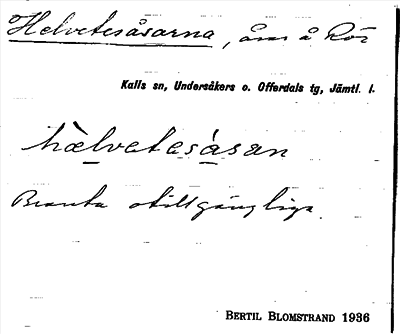 Helvetesåsarna, åsar å Rör
Kalls sn, Undersåkers o. Offerdals tg, Jämtl. l.
hàlvetesàsan
Branta otillgängliga.
BERTIL BLOMSTRAND 1936